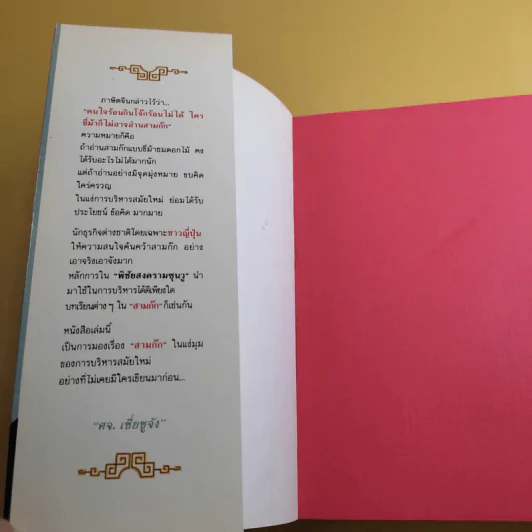 ภาษิตจีนกล่าวไว้ว่า...
"คนใจร้อนกินโจ๊กร้อนไม่ได้ ใคร
ขี่ม้าก็ไม่อาจอ่านสามก๊ก"
ความหมายก็คือ
ถ้าอ่านสามก๊กแบบขี่ม้าชมดอกไม้ คง
ได้รับอะไรไม่ได้มากนัก
แต่ถ้าอ่านอย่างมีจุดมุ่งหมาย ขบคิด
ใคร่ครวญ
ในแง่การบริหารสมัยใหม่ ย่อมได้รับ
ประโยชน์ ข้อคิด มากมาย
นักธุรกิจต่างชาติโดยเฉพาะชาวญี่ปุ่น
ให้ความสนใจค้นคว้าสามก๊ก อย่าง
เอาจริงเอาจังมาก
หลักการใน "พิชัยสงครามซุนวู" นำ
มาใช้ในการบริหารได้ดีเพียงใด
บทเรียนต่างๆ ใน "สามก๊ก" ก็เช่นกัน
หนังสือเล่มนี้
เป็นการมองเรื่อง "สามก๊ก" ในแง่มุม
ของการบริหารสมัยใหม่
อย่างที่ไม่เคยมีใครเขียนมาก่อน...
"ศจ. เชี่ยซูจัง"